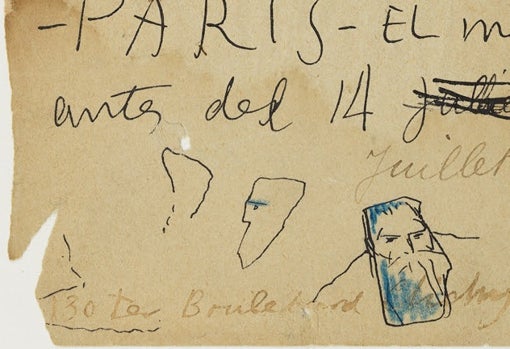 -PARIS- EL m
antes del 14
Juillet
130 ter Boulevard